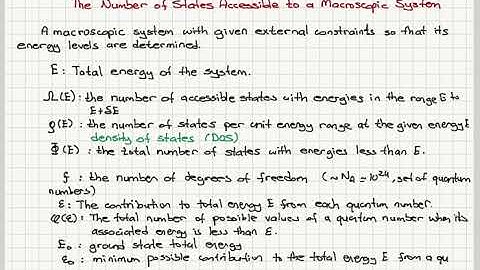 The Number of States Accessible to a Macroscopic System
A macroscopic system with given external constraints so that its
energy levels are determined.
E : Total energy of the system.
Ω(E) : the number of accessible states with energies in the range E to
E+δE
ρ(E) : the number of states per unit energy range at the given energy E
density of states (DOS)
Φ(E) : the total number of states with energies less than E.
f : the number of degrees of freedom (~ Nₐ = 10²⁴, set of quantum
numbers)
ε : The contribution to total energy E from each quantum number.
φ(ε) : The total number of possible values of a quantum number when its
associated energy is less than ε.
E₀ : ground state total energy
ε₀ : minimum possible contribution to the total energy E from a qu